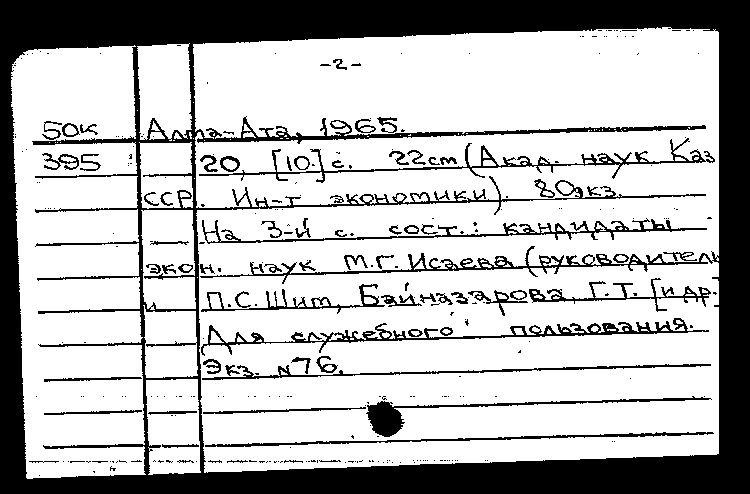 -2-
50к Алма-Ата, 1965.
395 20, [10] с. 22cm (Акад. наук Каз
ССР. Ин-т экономики). 80экз.
На 3-й с. сост.: кандидаты
экон. наук М.Г. Исаева (руководитель
и П.С. Шим, Байназарова Г.Т. [и др.]
Для служебного пользования.
Экз. №76.